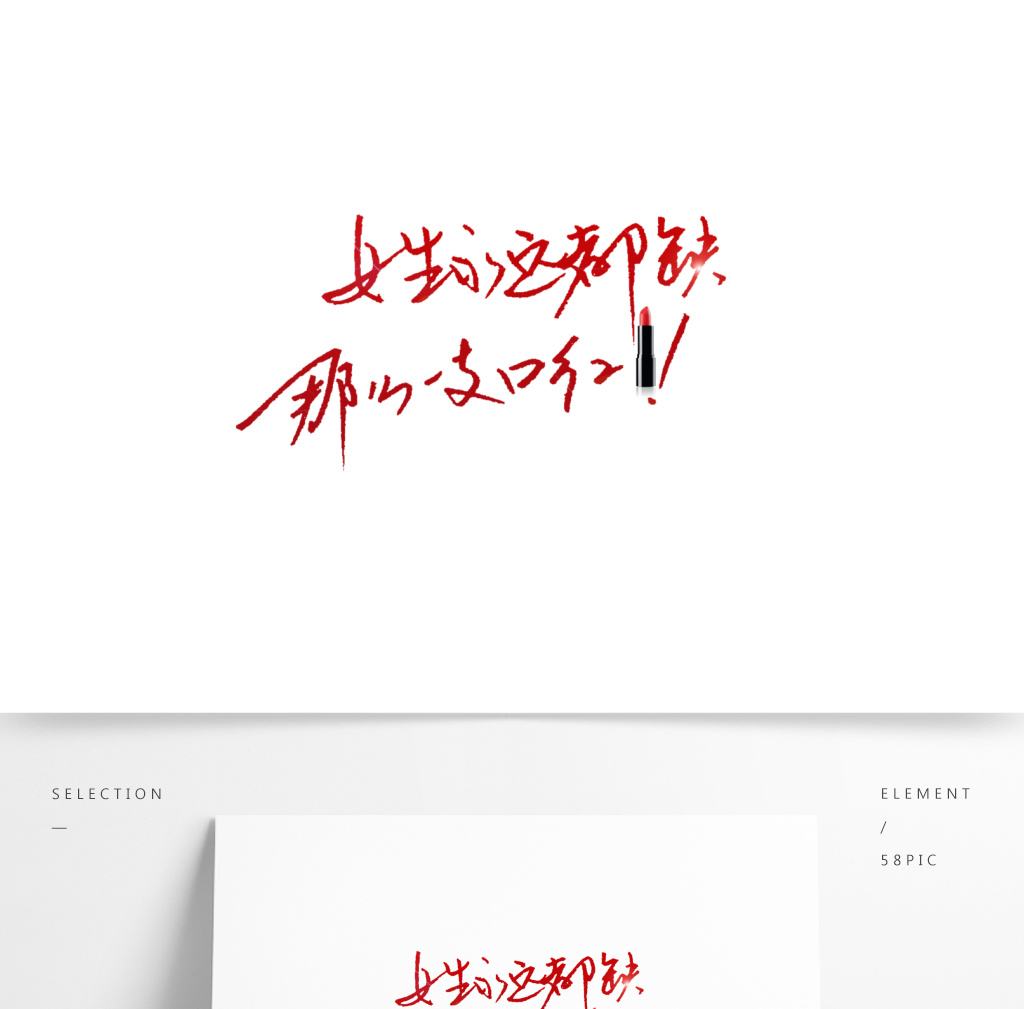 女生永远都缺
那么一支口红!
SELECTION
—
ELEMENT
/
58PIC
女生永远都缺